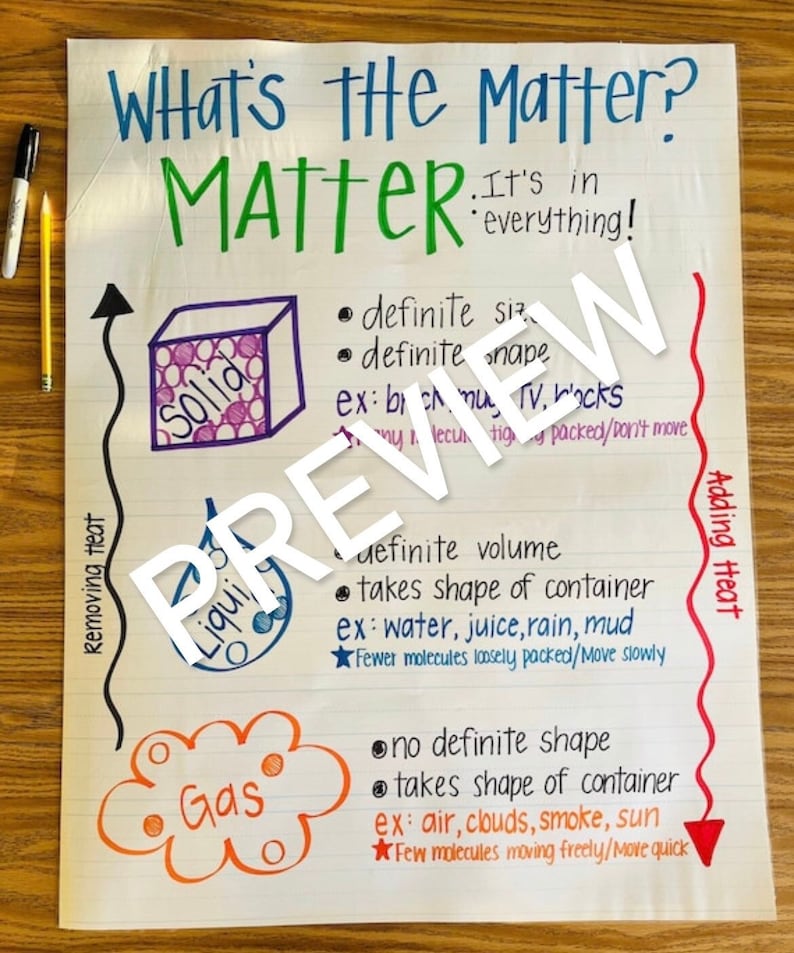 What's the Matter?
MATTER: It's in
everything!
• definite size
• definite shape
Solid
ex: brick, mug, TV, blocks
★ Many molecules tightly packed/Don't move
PREVIEW
Removing Heat
Adding Heat
• definite volume
• takes shape of container
Liquid
ex: water, juice, rain, mud
★ Fewer molecules loosely packed/Move slowly
• no definite shape
• takes shape of container
Gas
ex: air, clouds, smoke, sun
★ Few molecules moving freely/Move quick
Sharpie